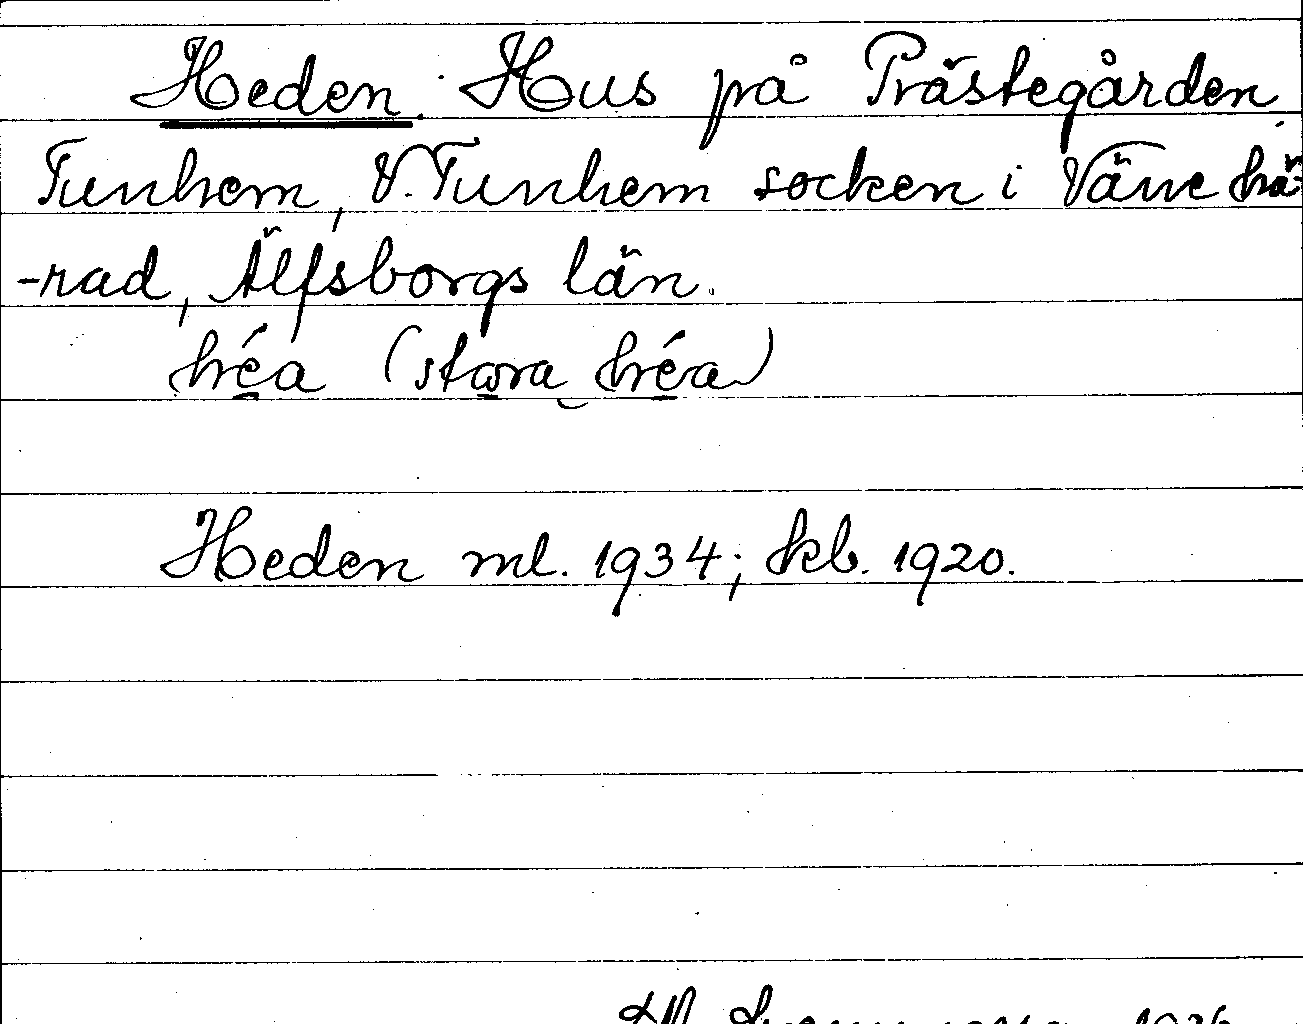 Heden. Hus på Prästegården
Tunhem, V. Tunhem socken i Väne hä-
-rad, Älfsborgs län.
héa (stora héa)
Heden ml. 1934; kb. 1920.